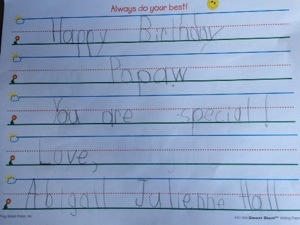 Always do your best!
Happy Birthday
Papaw
You are special!
Love,
Abigail Julienne Hall
Smart Start™ Writing Paper